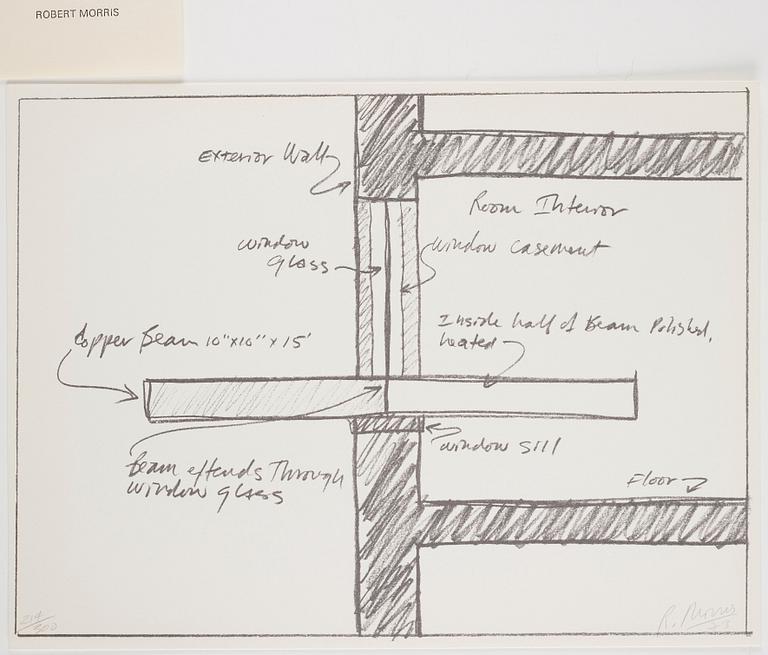 ROBERT MORRIS
Exterior Wall
Room Interior
window
glass
window casement
Copper Beam 10"x10" x 15'
Inside half of Beam Polished,
heated
window sill
Beam extends Through
window glass
Floor
R. Morris
73